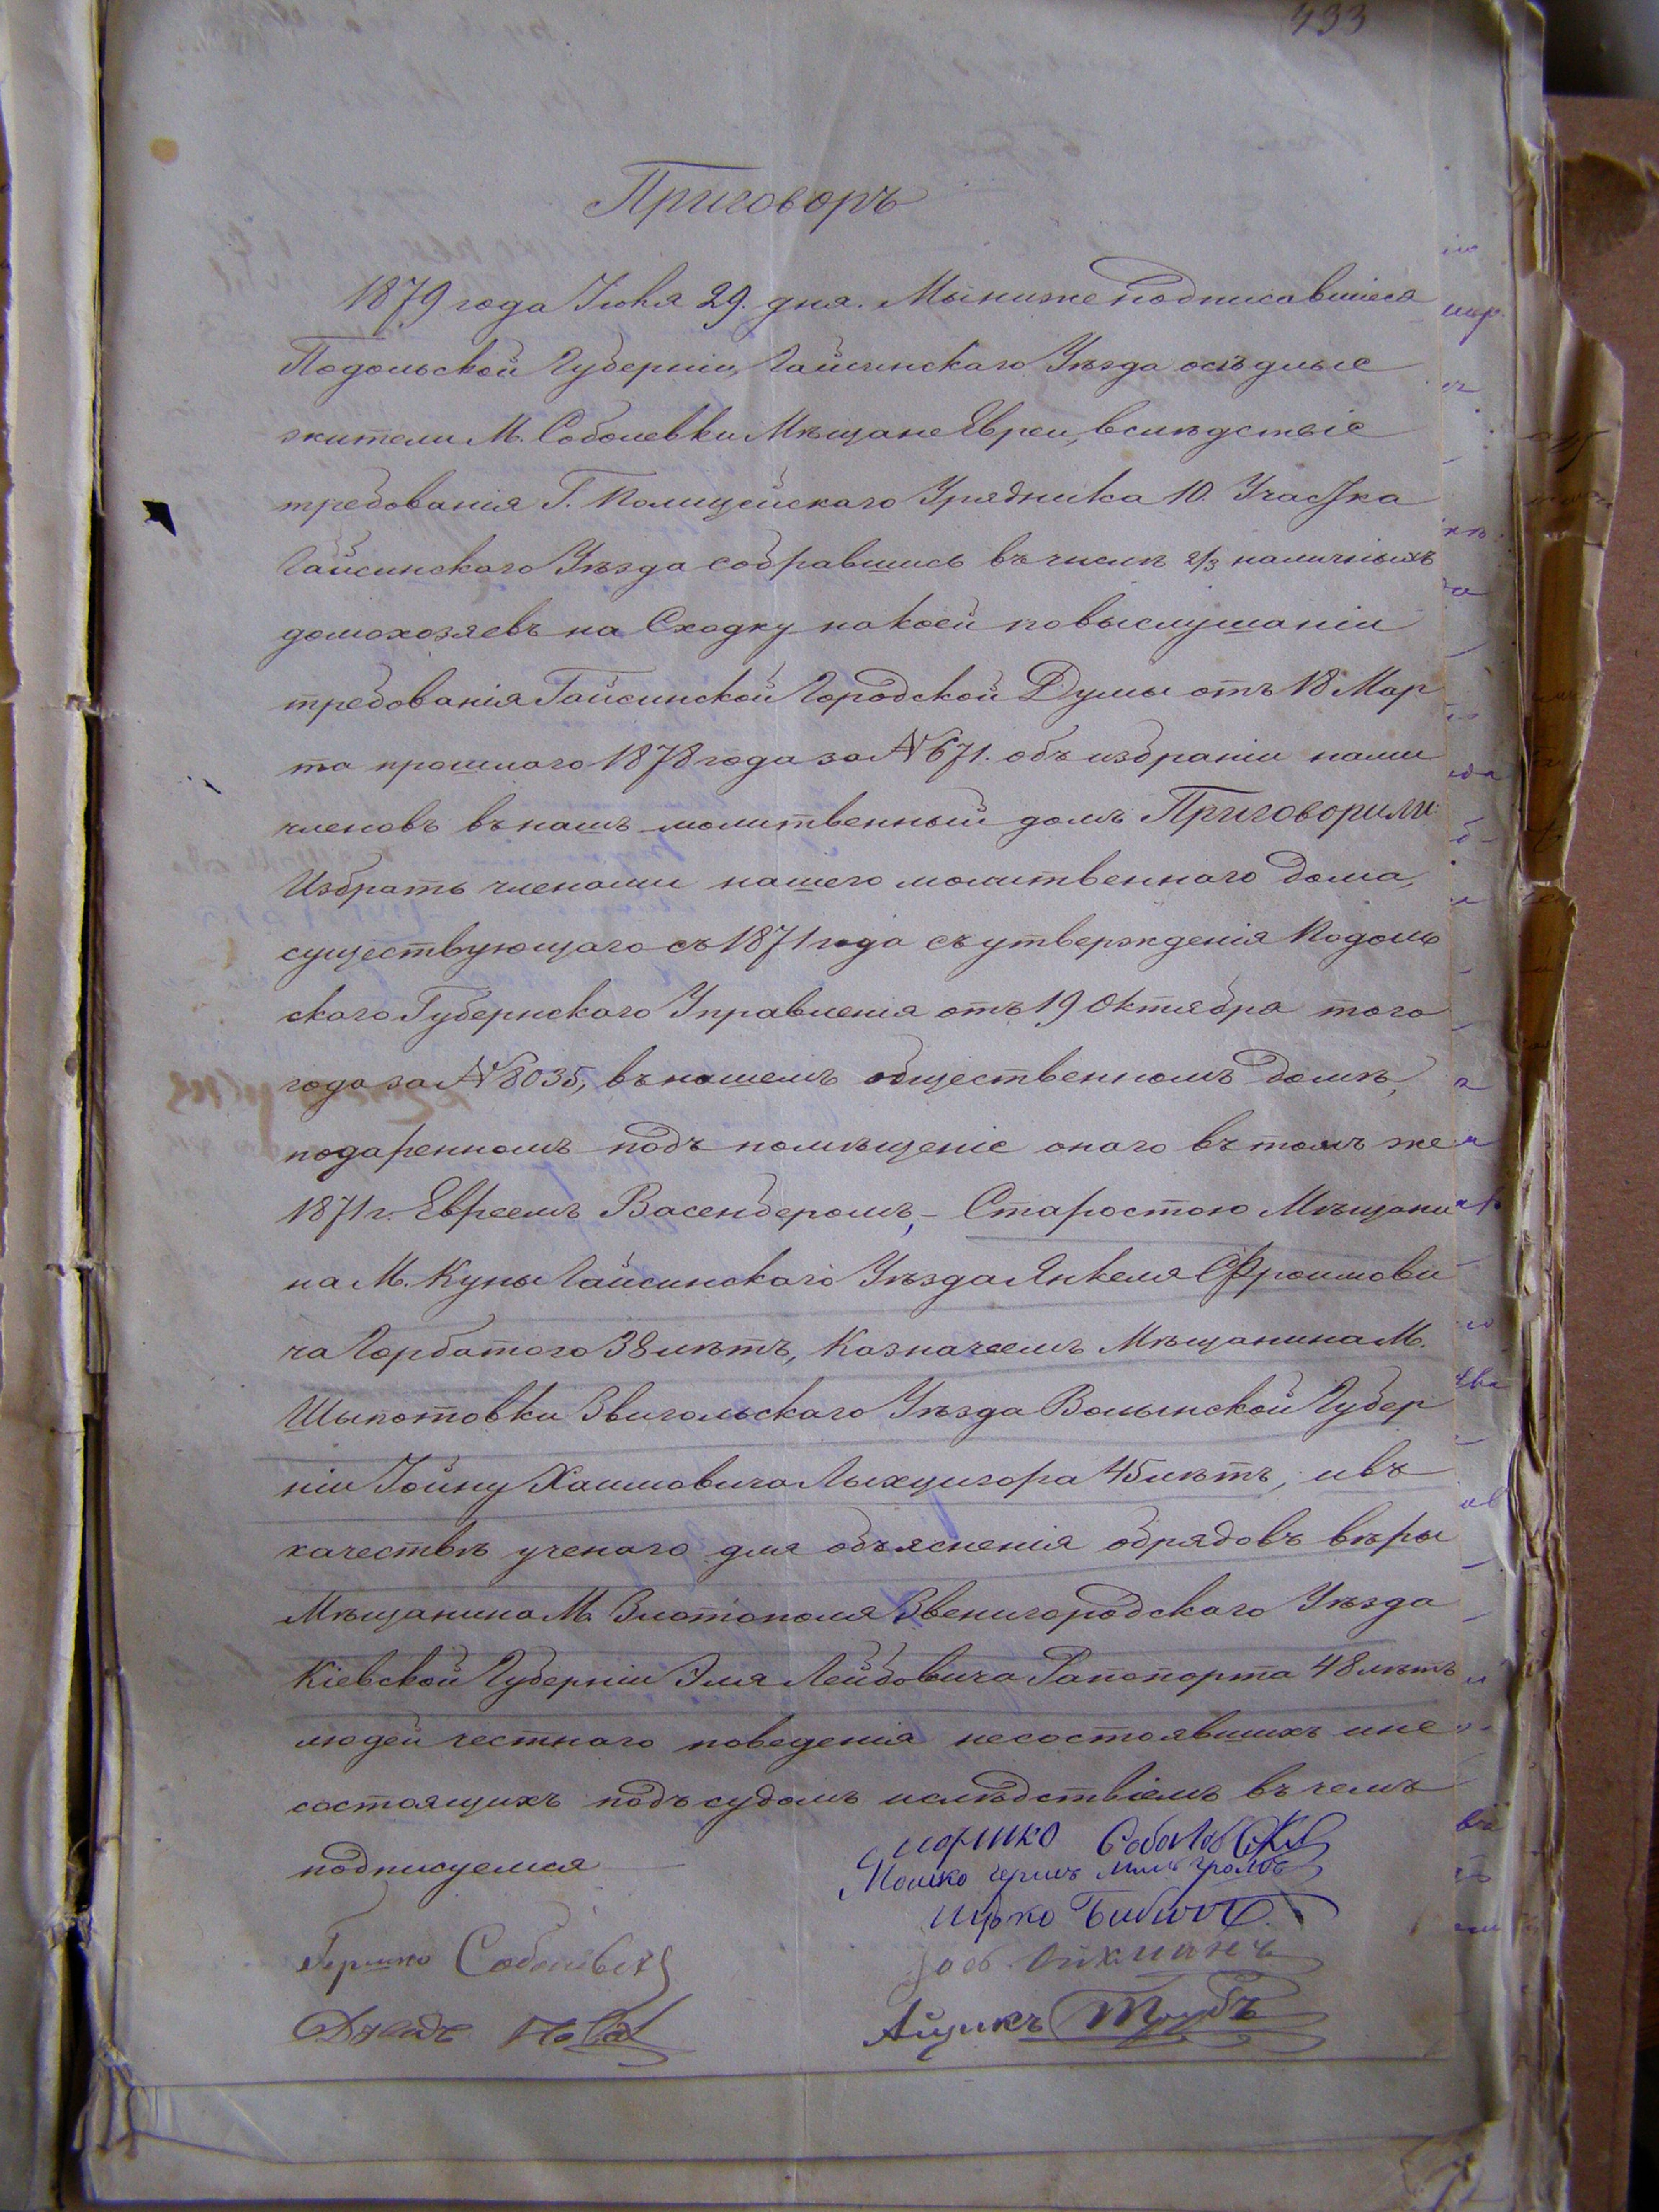 433
Приговоръ
1879 года Іюня 29. дня. Мы нижеподписавшіеся
Подольской Губерніи, Гайсинскаго Уѣзда осѣдлые
жители М. Соболевки Мѣщане Евреи, вслѣдствіе
требованія Г. Полицейскаго Урядника 10. Участка
Гайсинскаго Уѣзда собравшись въ числѣ 2/3 наличныхъ
домохозяевъ на Сходку на коей по выслушаніи
требованія Гайсинской Городской Думы отъ 18 Мар
та прошлаго 1878 года за № 671. объ избраніи нами
членовъ въ нашъ молитвенный домъ Приговорили:
Избрать членами нашего молитвеннаго дома,
существующаго съ 1871 года съ утвержденія Подоль
скаго Губернскаго Управленія отъ 19 Октября того
года за № 8035, въ нашемъ общественномъ домѣ,
подаренномъ подъ помѣщеніе онаго въ томъ же
1871 г. Евреемъ Васенберомъ, – Старостою Мѣщани
на М. Куны Гайсинскаго Уѣзда Янкеля Фроимови
ча Горбатого 38 лѣтъ, Казначеемъ Мѣщанина М.
Шыпотовки Звигольскаго Уѣзда Волынской Губер
ніи Іойну Хаимовича Лыхцигора 45 лѣтъ, и въ
качествѣ ученаго для объясненія обрядовъ вѣры
Мѣщанина М. Златополя Звенигородскаго Уѣзда
Кіевской Губерніи Эля Лейбовича Рапопорта 48 лѣтъ
людей честнаго поведенія несостоявшихъ и не
состоящихъ подъ судомъ и слѣдствіемъ въ чемъ
подписуемся
Мошко Гершъ
Ицко
Гершко
Айцикъ Таубъ